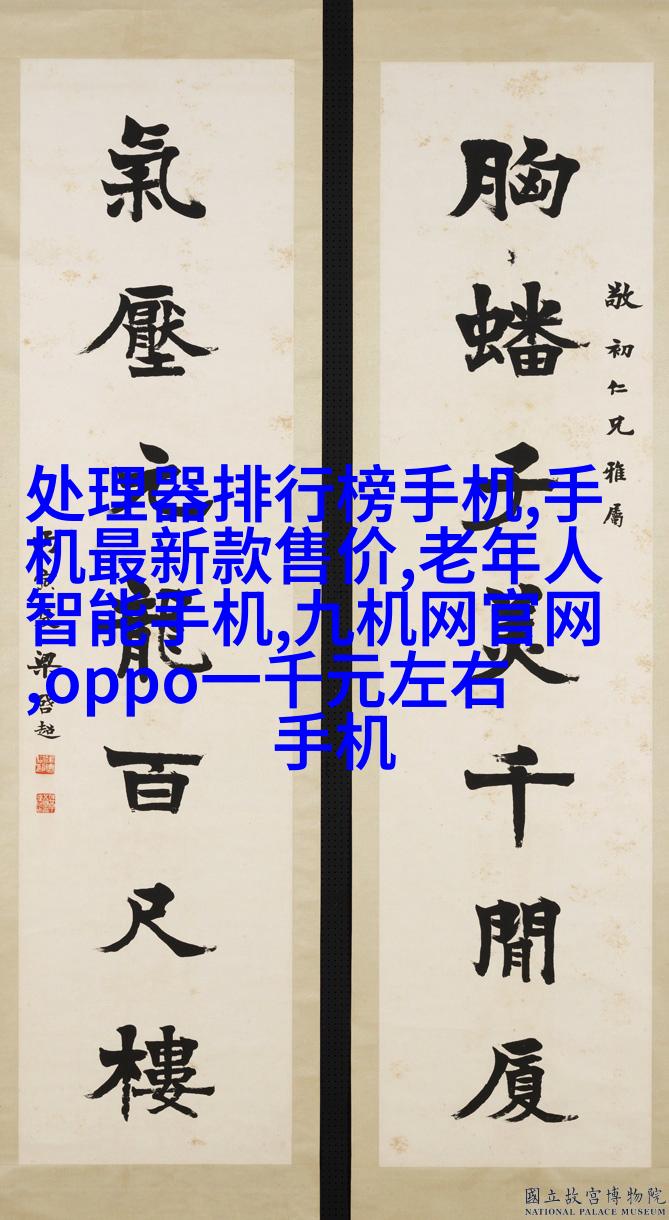 敬初仁兄雅屬
胸蟠子美千間厦
氣壓元龍百尺樓
梁啓超
处理器排行榜手机,手
机最新款售价,老年人
智能手机,九机网官网
,oppo一千元左右
手机
國立故宮博物院
NATIONAL PALACE MUSEUM